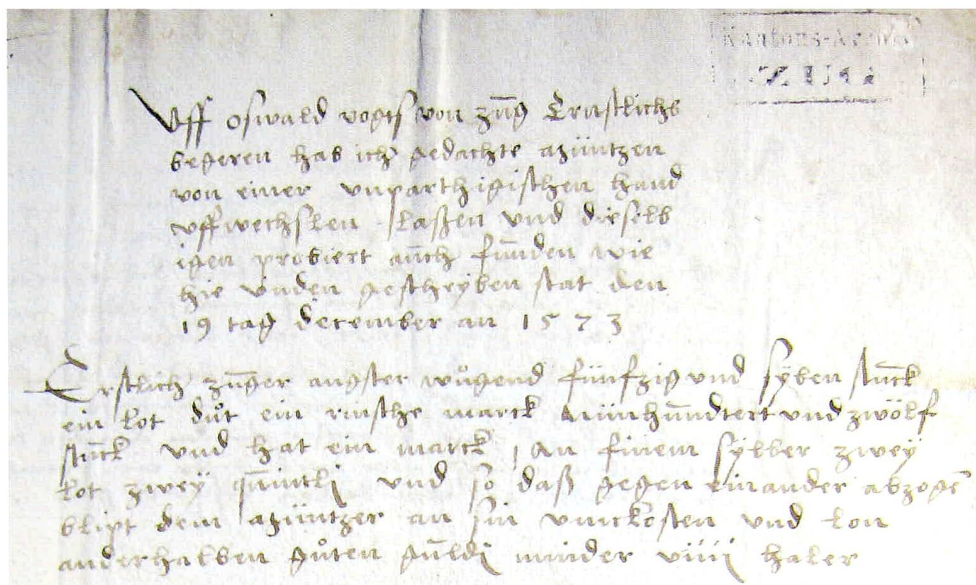 Kantons-Archiv
ZUG
Uff oswald vogts von zug Ernstlichs
begeren hab ich gedachte müntzen
von einer unparthigischen hand
uffwechslen laßen und dieselb
igen probiert auch funden wie
hie unden geschryben stat den
19 tag december an 1573
Erstlich zuger angster wůgend fünfzig und syben stuck
ein lot důt ein rinsche marck nünhundtert und zwölf
stuck und hat ein marck an finem sylber zwey
lot zwey quintli und so daß gegen einander abzogē
blipt dem müntzer an sin unckosten und lon
anderhalben gůten guldi minder viiij haler